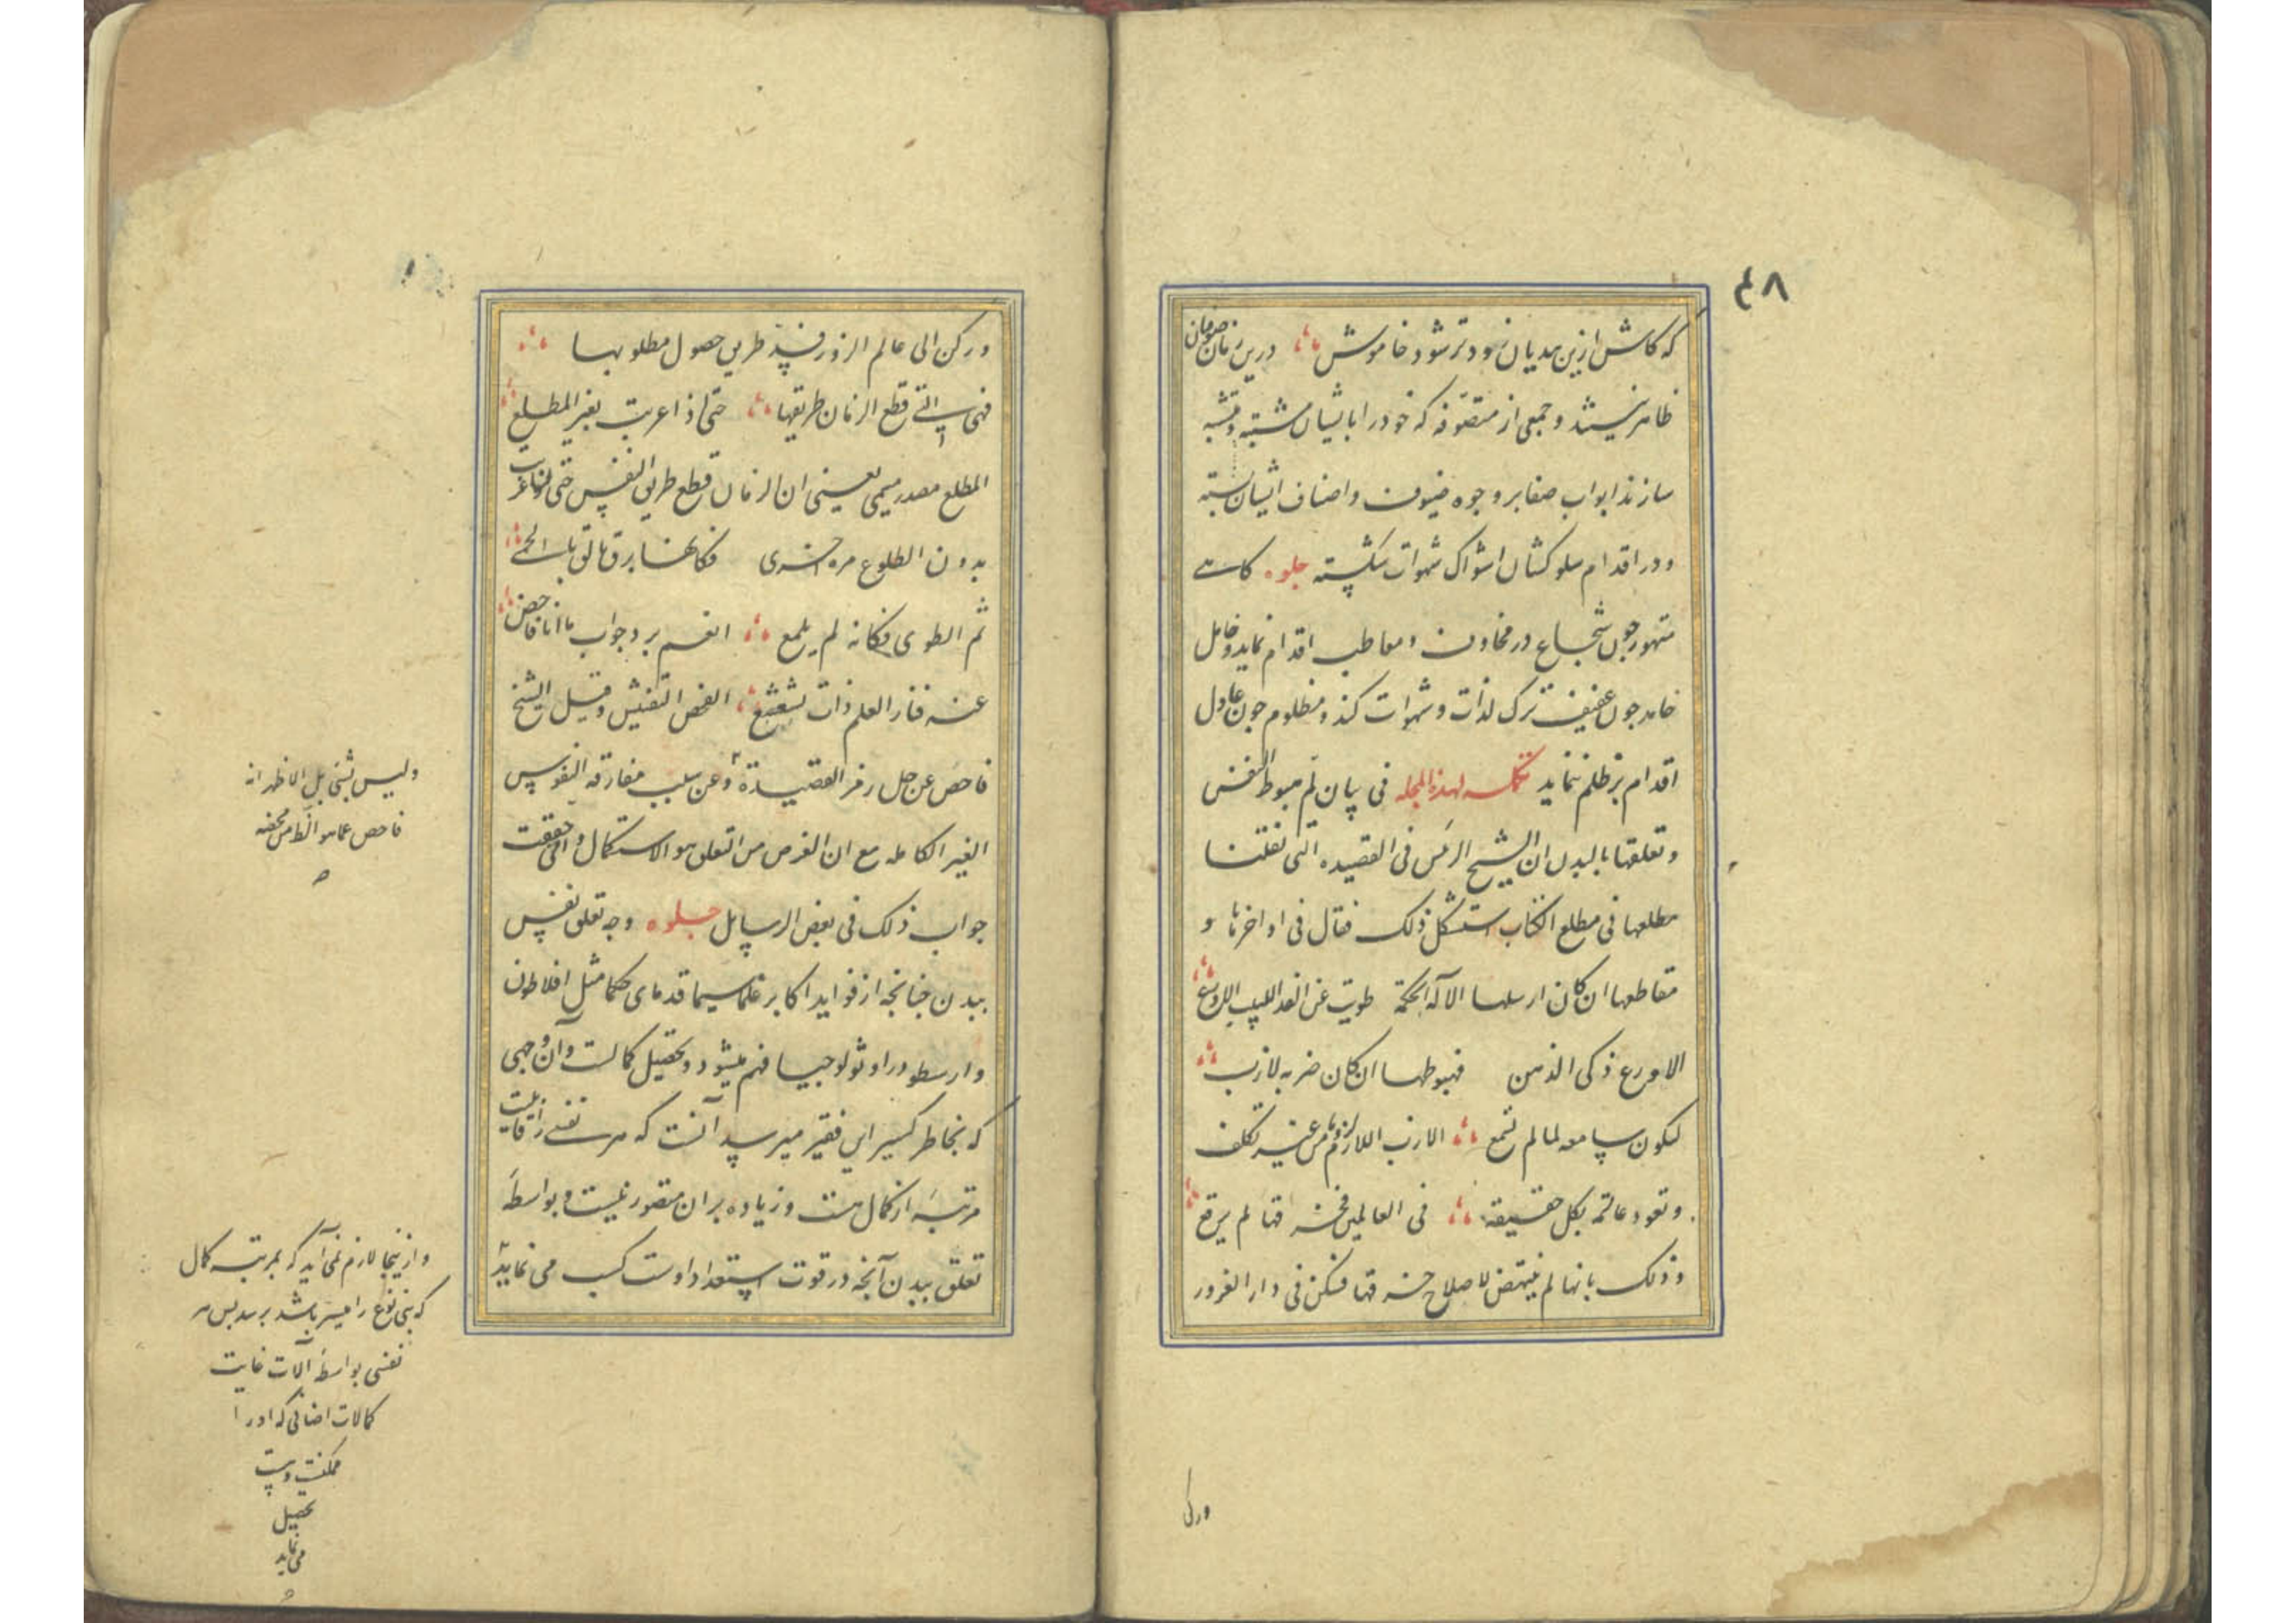 ٤٨
که کاش ازین هدیان زودتر شود خاموش درین زمان صوفیان
ظاهر نیستند و جمعی از متصوفه که خود را بایشان مشتبه و متشبه
سازند ابواب صفا بر وجوه ضیوف و اصناف ایشان بسته
و در اقدام سلوکشان اشواک شهوات شکسته جلوه کاهی
متهور جون شجاع در مخاوف و معاطب اقدام نماید و خامل
خامد جون عفیف ترک لذات و شهوات کند و مظلوم جون عادل
اقدام بر ظلم ننماید تکمله لهذه المجله فی بیان لم هبوط النفس
و تعلقها بالبدن ان الشیخ الرئس فی القصیده التی نقلنا
مطلعها فی مطلع الکتاب استشکل ذلک فقال فی اواخرها و
مقاطعها ان کان ارسلها الاله لحکمة طویت عن الفذ اللبیب الاروع
الاورع ذکی الذهن فهبوطها ان کان ضربه لازب
لیکون سامعه لما لم تسمع اللازب اللازم من غیر تکلف
و تعود عالمة بکل حقیقة فی العالمین فخرقها لم یرقع
و ذلک بانها لم ینتهض لاصلاح خرقها فسکن فی دار الغرور
ورکن
ورکن الی عالم الزور فسد طریق حصول مطلوبها
فهی التی قطع الزمان طریقها حتی اذا غربت بغیر المطلع
المطلع مصدر میمی یعنی ان الزمان قطع طریق النفس حتی غرب
بدون الطلوع مره اخری فکانها برق تالق بالحمی
ثم انطوی فکانه لم یلمع انعم برد جواب ما انا فاحص
عنه فنار العلم ذات تشعشع الفحص التفتیش و قیل الشیخ
فاحص عن حل رمز القصیدة و عن سبب مفارقه النفوس
الغیر الکامله مع ان الغرض من التعلق هو الاستکمال و انی حققت
جواب ذلک فی بعض الرسایل جلوه وجه تعلق نفس
ببدن جنانجه از فواید اکابر علما سیما قدمای حکما مثل افلاطون
و ارسطو در اوثولوجیا فهم میشود تحصیل کمالست و آن وجهی
که بخاطر کسیر این فقیر میرسد آنست که هر نفسی را قابلیت
مرتبه از کمال هست و زیاده بر ان متصور نیست و بواسطه
تعلق ببدن آنجه در قوت استعداد اوست کسب می نماید
و لیس بشئ بل الاظهر انه
فاحص عما هو الظ من فحصه
و ازینجا لازم نمی آید که بمرتبه کمال
که بنی نوع را میسر باشد برسد بس هر
نفسی بواسطه آلات غایت
کمالات اضافی که او را
ممکنست
تحصیل
می نماید